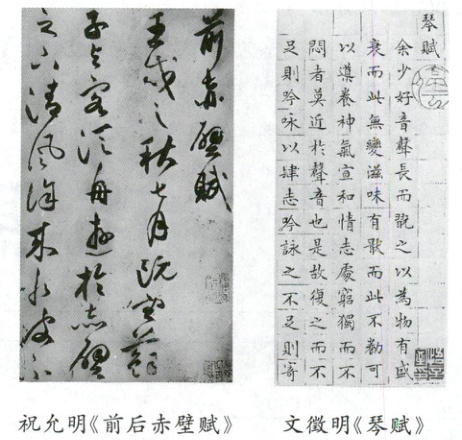 前赤壁賦
壬戌之秋七月既望蘇
子与客泛舟遊於赤壁
之下清風徐来水波不
琴賦
余少好音聲長而翫之以為物有盛
衰而此無變滋味有猒而此不勌可
以導養神氣宣和情志處窮獨而不
悶者莫近於聲音也是故復之而不
足則吟咏以肆志吟詠之不足則寄
祝允明《前后赤壁赋》
文徵明《琴赋》